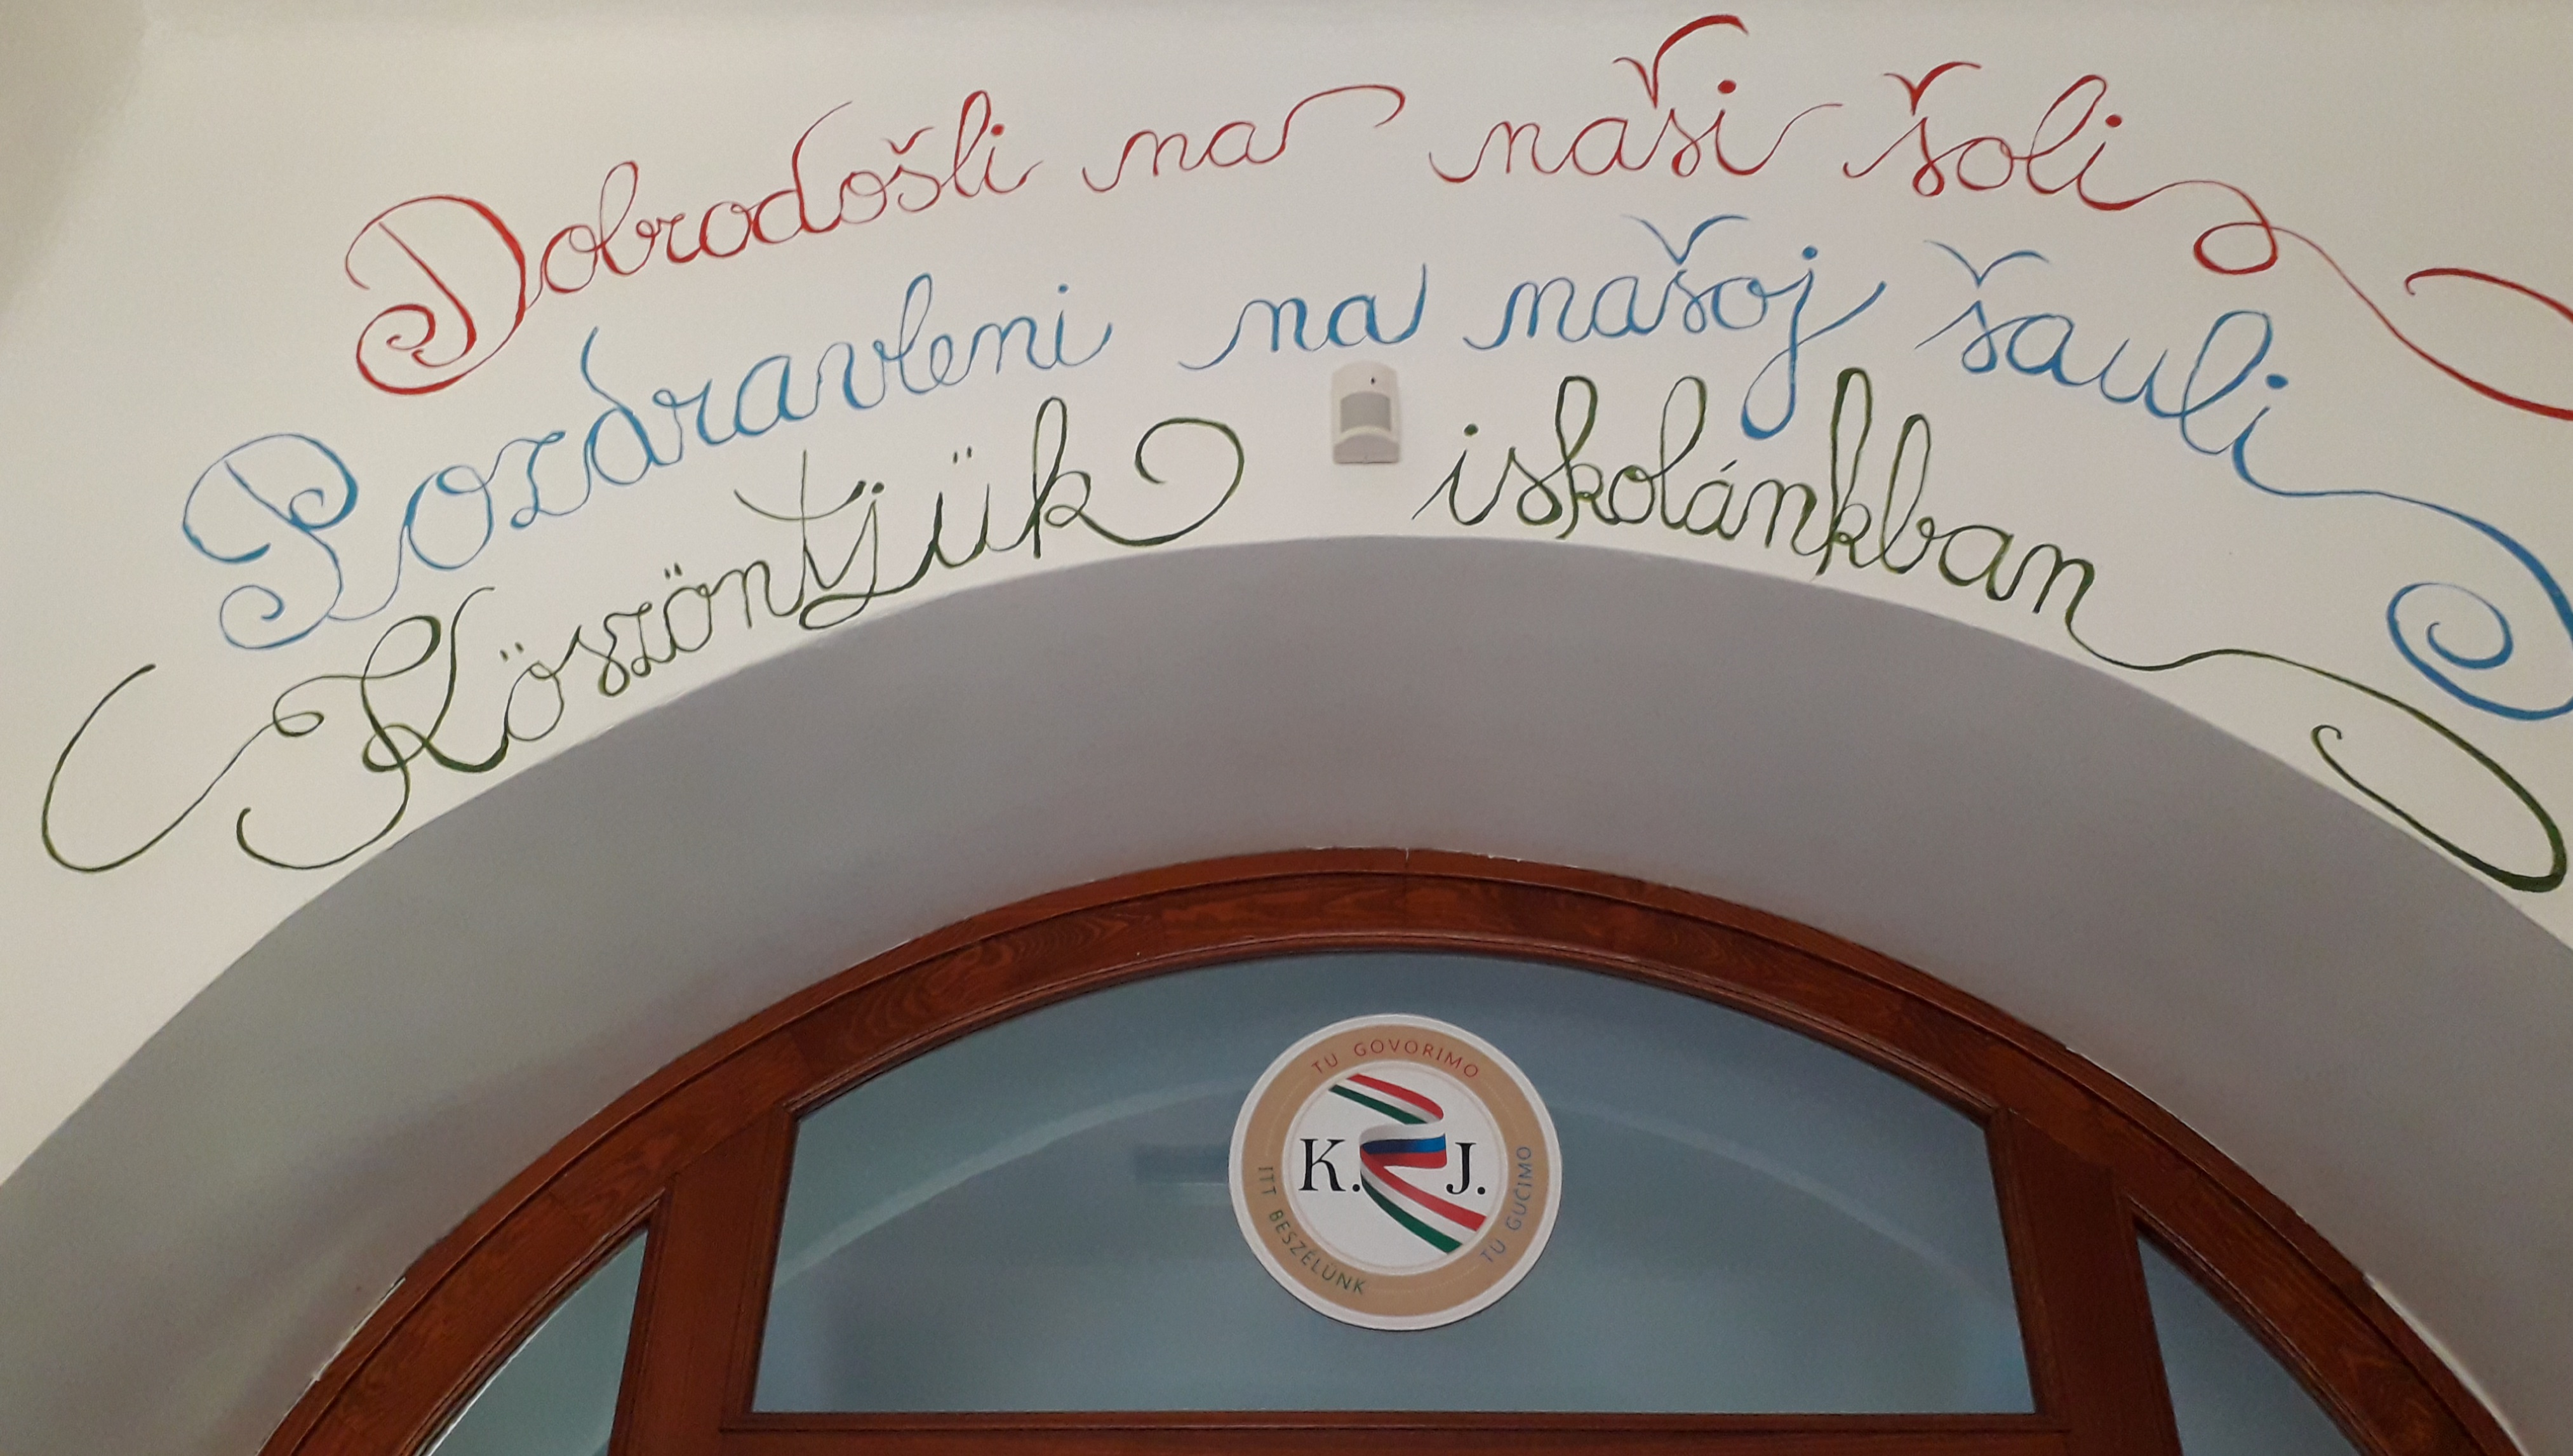 Dobrodošli na naši šoli
Pozdravleni na našoj šauli
Köszöntjük iskolánkban
TU GOVORIMO
K. J.
TU GUČIMO
ITT BESZÉLÜNK